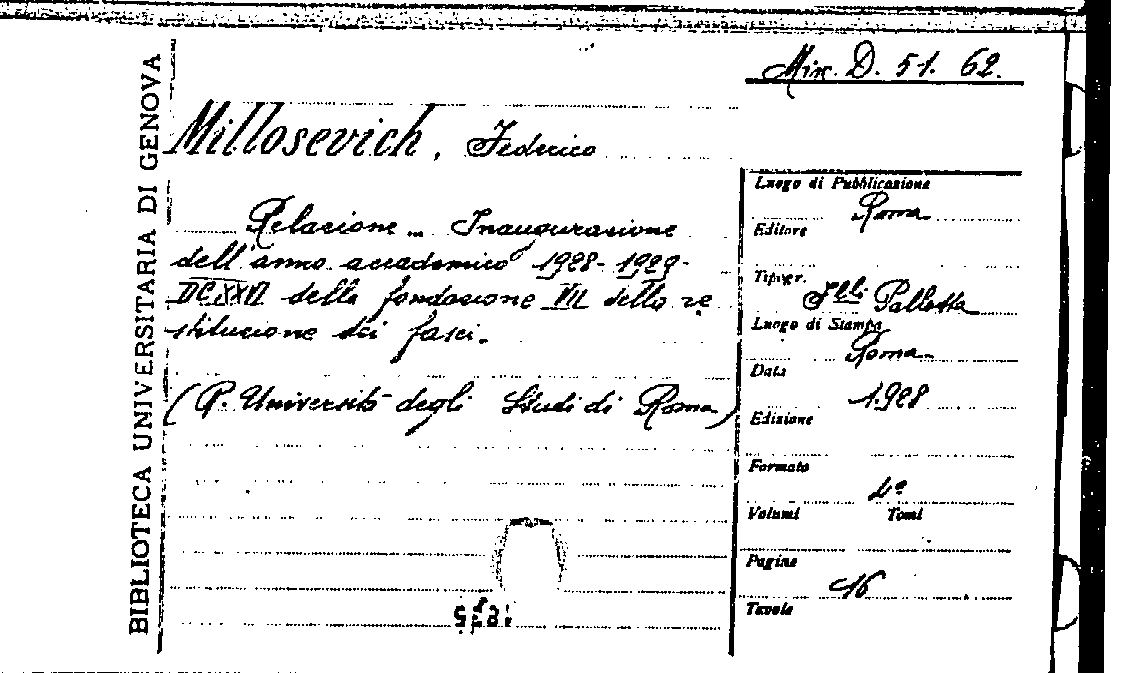 BIBLIOTECA UNIVERSITARIA DI GENOVA
Misc. D. 51. 62.
Millosevich, Federico
Relazione... Inaugurazione
dell'anno accademico 1928-1929-
DCXXVI della fondazione VII della re
stituzione dei fasci.
(R. Università degli Studi di Roma)
Luogo di Pubblicazione
Roma
Editore
Tipogr.
F.lli Pallotta
Luogo di Stampa
Roma
Data
1928
Edizione
Formato
4°
Volumi Tomi
Pagine
16
Tavole